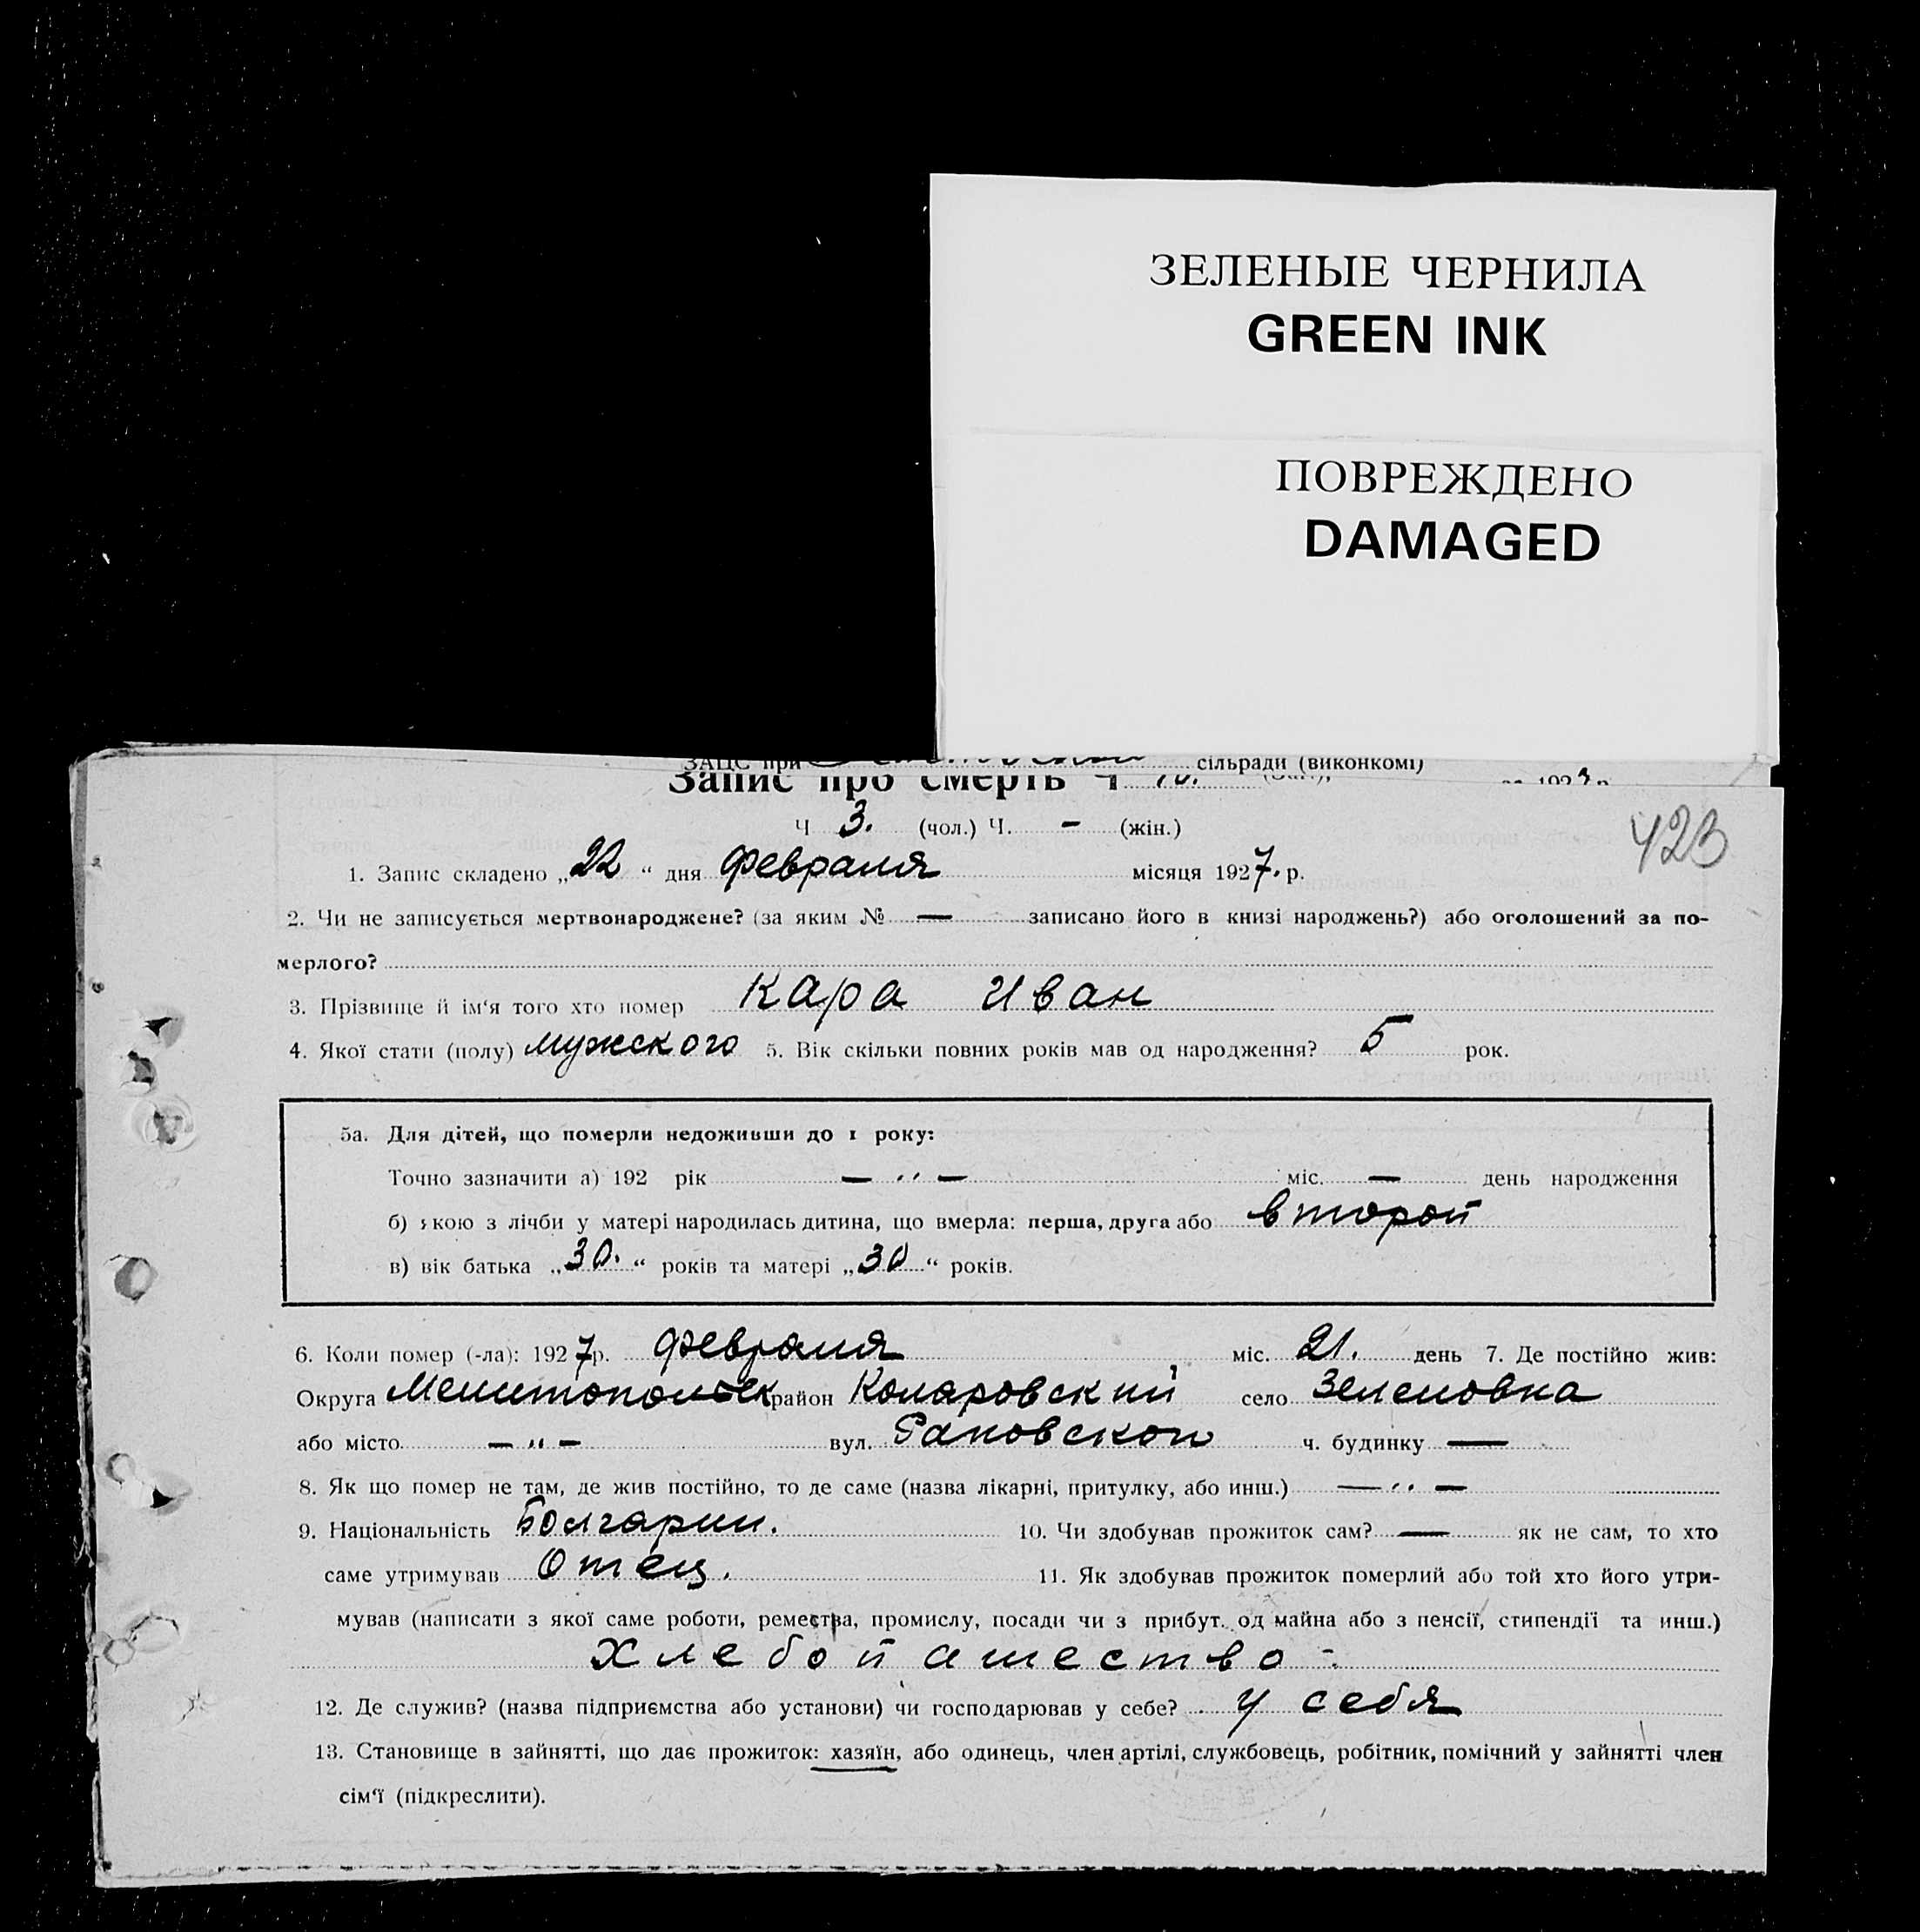 ЗЕЛЕНЫЕ ЧЕРНИЛА
GREEN INK
ПОВРЕЖДЕНО
DAMAGED
ЗАЦС при сільради (виконкомі)
Запис про смерть Ч 10.
423
Ч 3. (чол.) Ч. — (жін.)
1. Запис складено „22“ дня Февраля місяця 1927. р.
2. Чи не записується мертвонароджене? (за яким № — записано його в книзі народжень?) або оголошений за по-
мерлого?
3. Прізвище й ім‘я того хто помер Кара Иван
4. Якої стати (полу) мужского 5. Вік скільки повних років мав од народження? 5 рок.
5а. Для дітей, що померли недоживши до 1 року:
Точно зазначити а) 192 рік — „ — міс. — день народження
б) якою з лічби у матері народилась дитина, що вмерла: перша, друга або второй
в) вік батька „30.“ років та матері „30“ років.
6. Коли помер (-ла): 1927р. Февраля міс. 21. день 7. Де постійно жив:
Округа Мелитопольск район Коларовский село Зеленовка
або місто — „ — вул. ч. будинку —
8. Як що помер не там, де жив постійно, то де саме (назва лікарні, притулку, або инш.) — „ —
9. Національність Болгарин. 10. Чи здобував прожиток сам? — як не сам, то хто
саме утримував Отец. 11. Як здобував прожиток померлий або той хто його утри-
мував (написати з якої саме роботи, ремества, промислу, посади чи з прибут. од майна або з пенсії, стипендії та инш.)
Хлебопашество
12. Де служив? (назва підприємства або установи) чи господарював у себе? у себя
13. Становище в зайнятті, що дає прожиток: хазяїн, або одинець, член артілі, службовець, робітник, помічний у зайнятті член
сім‘ї (підкреслити).